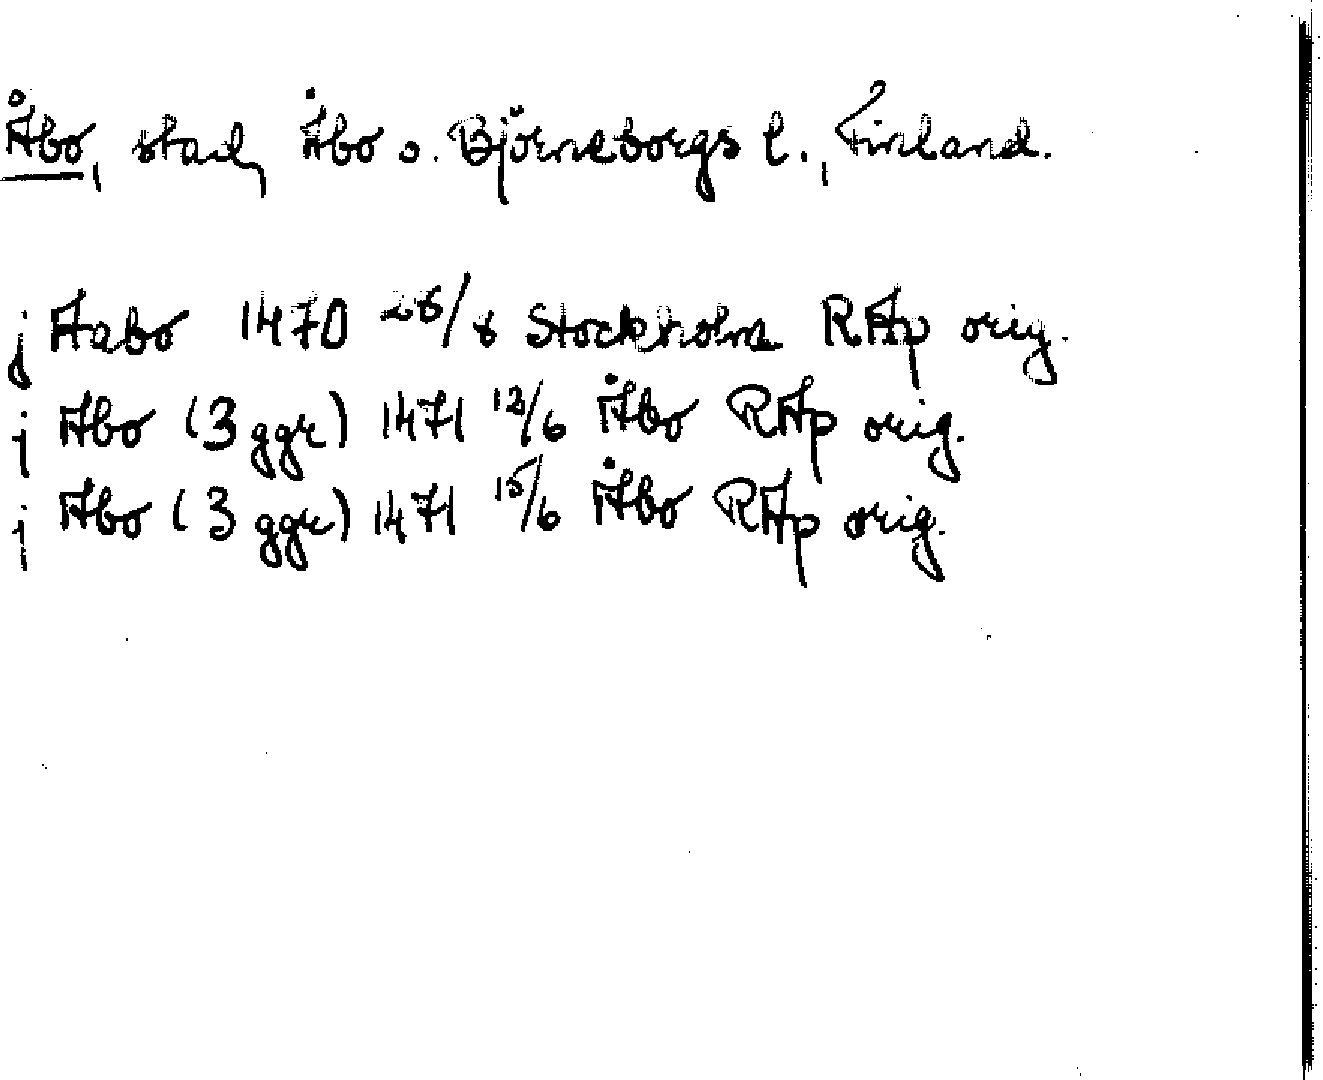 Åbo, stad, Åbo o. Björneborgs l., Finland.
j Aabo 1470 28/8 Stockholm RAp orig.
j Abo (3 ggr) 1471 13/6 Åbo RAp orig.
j Abo (3 ggr) 1471 15/6 Åbo RAp orig.